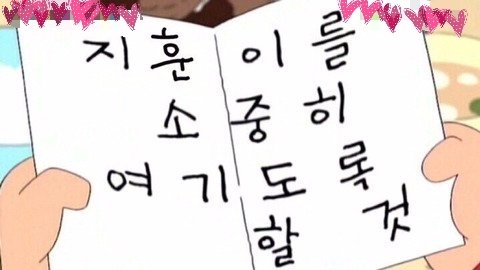 지훈이를
소중히
여기도록
할것